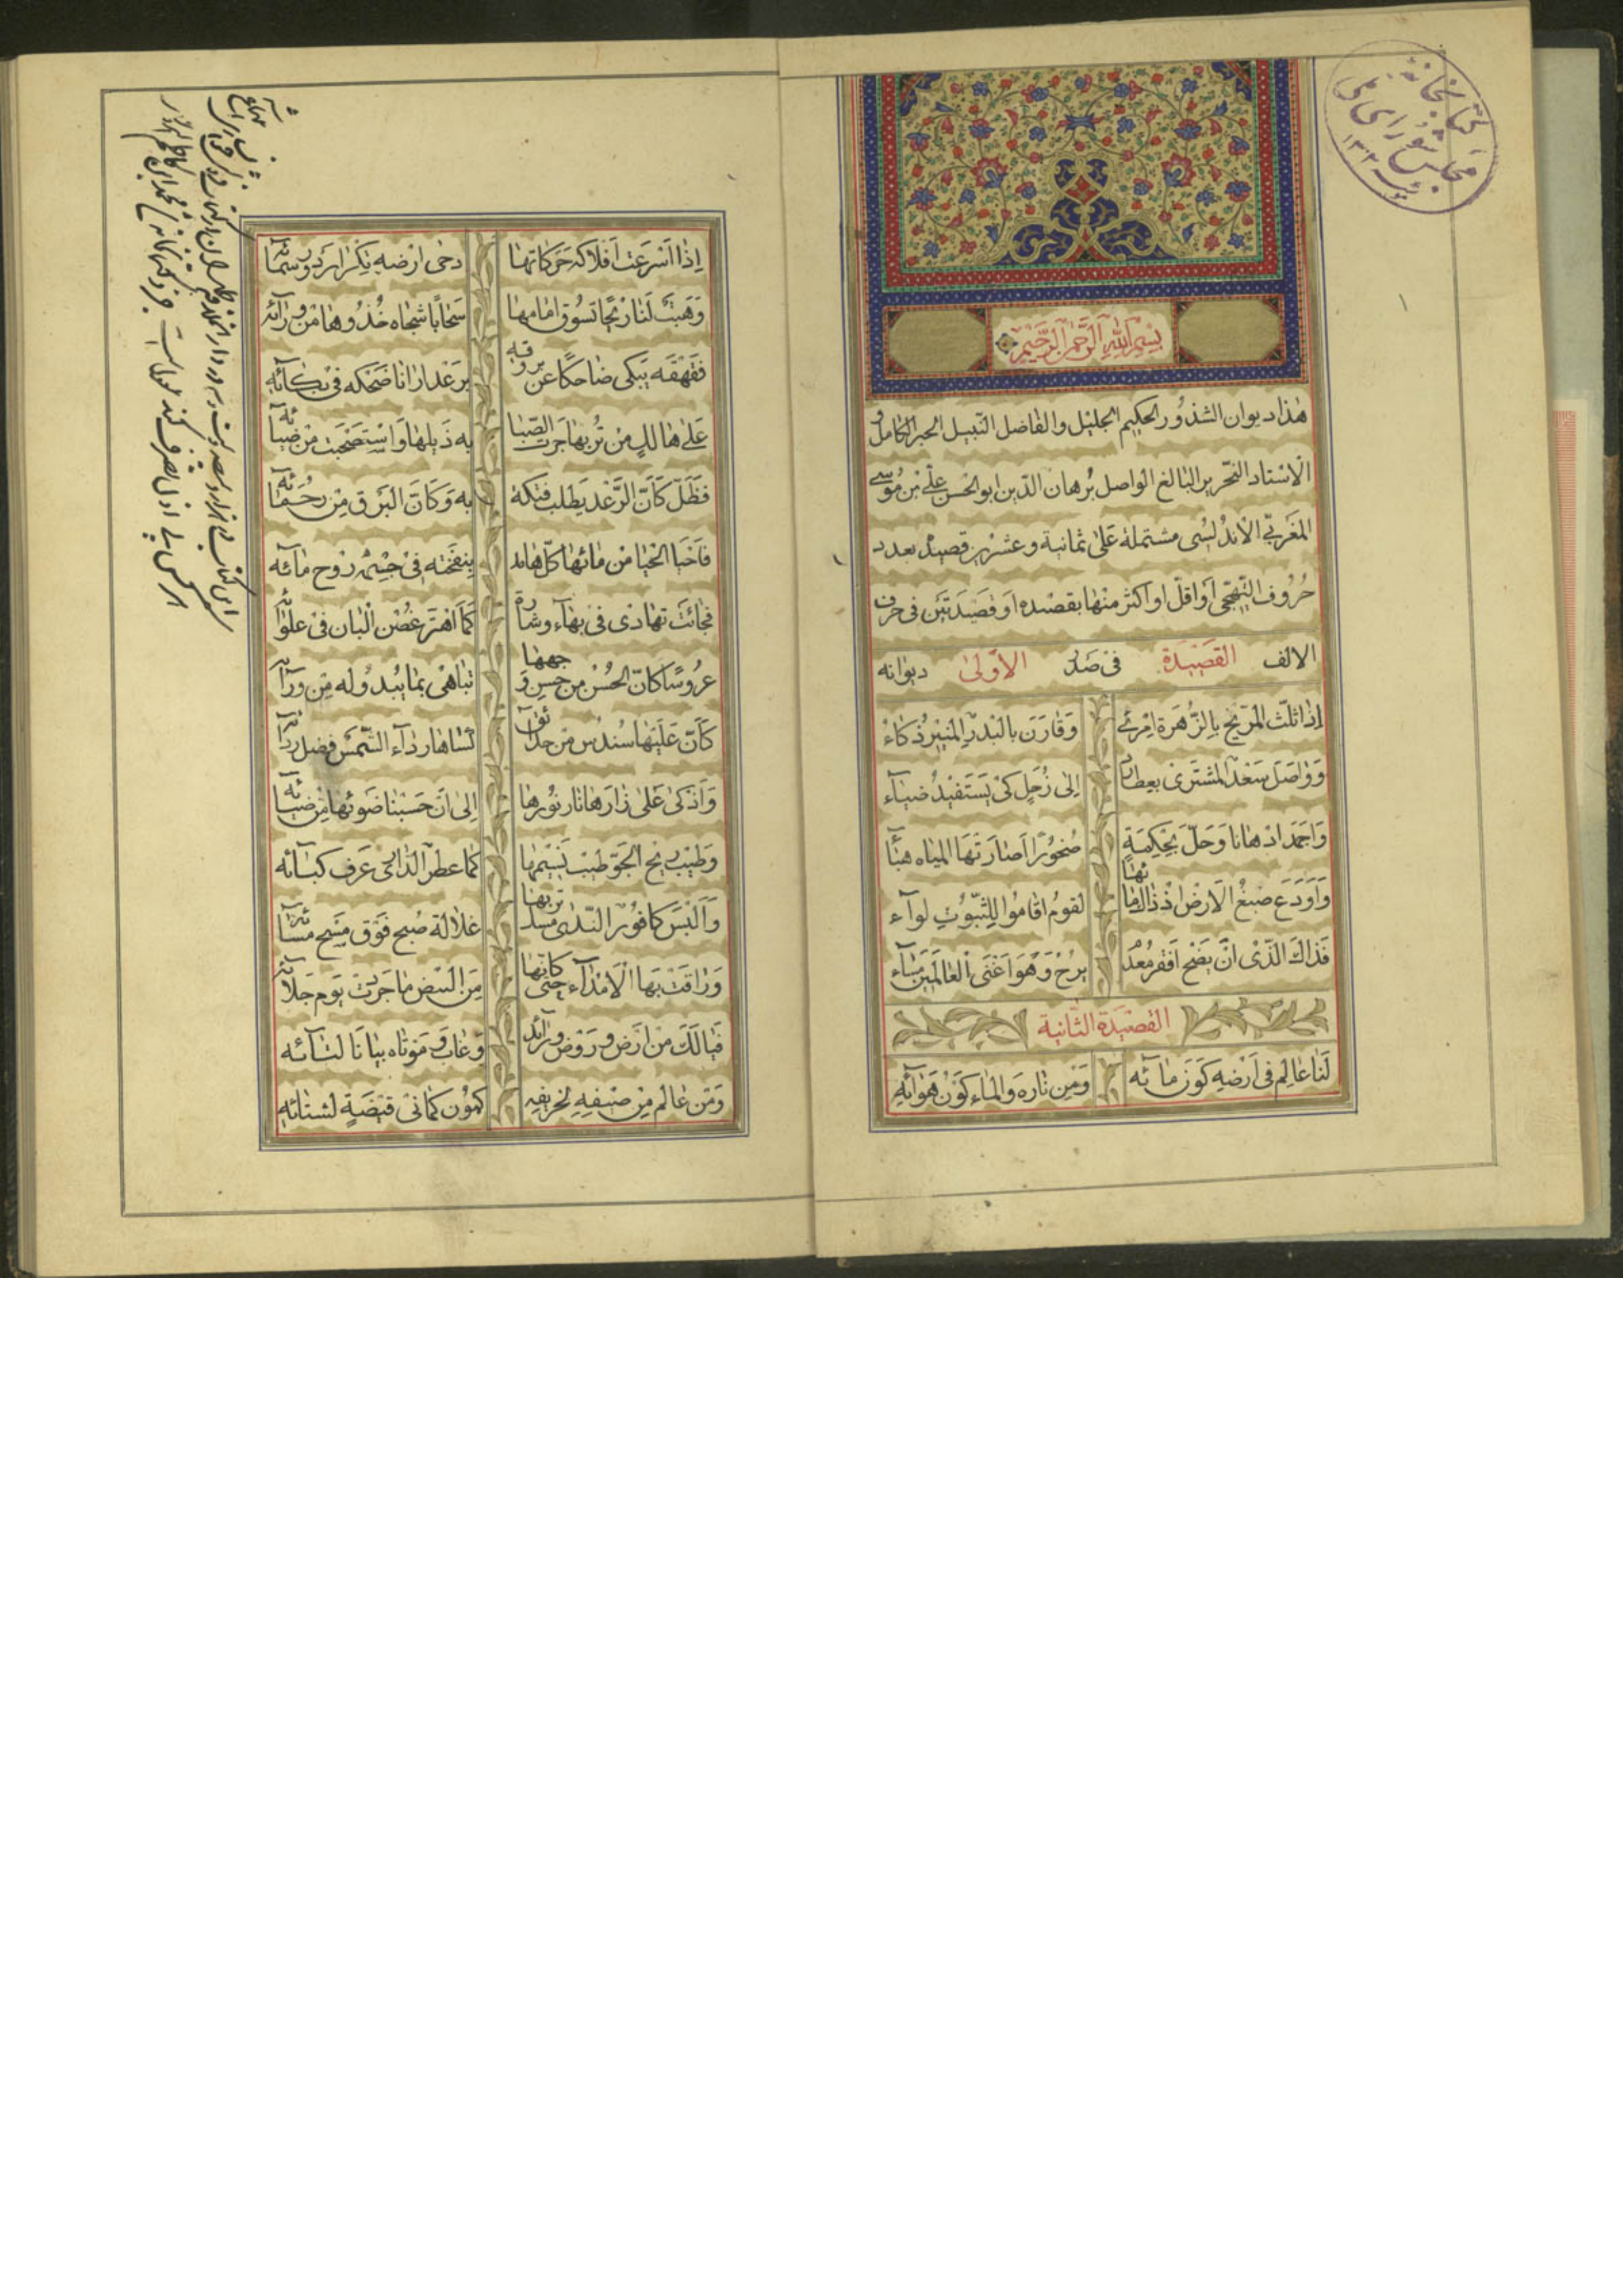 كتابخانه
مجلس شورای ملی
۱۳۰۲
بِسْمِ اللهِ الرَّحْمٰنِ الرَّحِيْمِ
هٰذا ديوان الشذور الحكيم الجليل والفاضل النبيل الحبر الكامل و
الاستاد النحّرير البالغ الواصل بُرهان الدّين ابو الحسن علّى بن مُوسى
المغربّى الأندلسُى مشتملة عَلىٰ ثمانية وعشرين قصيدة بعدد
حُرُوف التّهجّى أو اقلّ او اكثر منها بقصيده او قصيدتين فى حرف
الالف القصيدة الأولىٰ فى صدر ديوانه
اِذا ثلّث المرّيخ بالزّهرة امرئ وَقارَن بالبدر المنير ذُكاءُ
وَواصَلَ سَعْدَ المشترى بعطارد اِلى زُحَلٍ كى يَستفيدُ ضياء
وَاجمَد ادهانا وَحَلّ بحكمةٍ صُخُورًا اَصارَتها المياه هباءً
وَاَودَعَ صبغ الارض اذ ذاك ماءها لقومٍ اقامُوا للثبوتِ لواء
فذاكَ الذّى ان يضح افقر مُعدمٍ يرُحْ وَهُوَ اَغنَى العالَمين مساء
القصيدة الثّانية
لَنا عالم فى اَرضِهِ كَوَنَ مائه وَمِن نارِه وَالماء كَوْنُ هَوائِهِ
اِذا اَسْرَعَت اَفلاكه حَركاتِها دحىٰ ارضه تكرار دور سمائه
وَهَبّتْ لنا ريحًا تسُوق امامها سَحابًا شجاه خُذُوها من ورائه
فقهقه يبكى ضاحكًا عن بروقه برَعْدٍ ارانا ضحكه فى بكائِهِ
عَلى هالكٍ من تُربها جرت الصّبا به ذيلها وَاستصحبت من ضيائه
فظلّ كَأنّ الرّعد يطلب فتكة به وَكانَ البَرق مِنْ رحمائه
فاحيا الحيا من مائها كلّ هامد بنفخته فى جسمه رُوح مائه
فجائت تهادى فى بهآء وشارة كما اهتزّ غصن البان فى علوائه
عرُوسًا كانّ الحُسْن من حسن وجهها تباهى بما يبدُو له من ورائه
كأنّ عَلَيها سُندُس من حدائق كساها ردآء الشّمس فضل ردائه
وَاذكىٰ عَلىٰ ازهارها نار نورها اِلى ان حسبنا ضوئها من ضيائه
وَطيّب ريح الجوّ طيب نسيمها كما عطر الدّارى عرف كبائه
وَاَلبَسَ كافور النّدى مسك تربها غلالة صُبح فوق مسح مسائه
وَراقت بها الامداء حتّى كانّها مِن البيض ما جرّدت يوم جلائه
فيا لَكَ من ارض وروض ورائد وَغاب وَموتاه بيانا لشائه
وَمن عالمٍ مِن صيفِهِ لخريفِه كمُون كما فى قبضةٍ لشتائِهِ